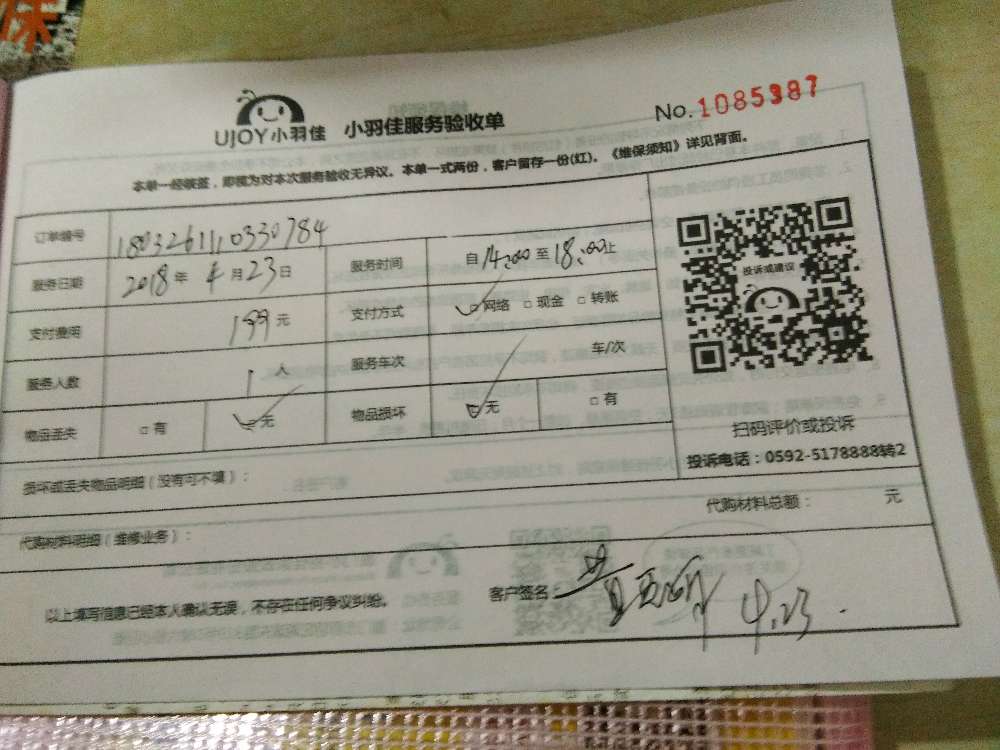 味
UJOY小羽佳 小羽佳服务验收单 No.1085387
本单一经被签，即视为对本次服务验收无异议。本单一式两份，客户留存一份(红)。《维保须知》详见背面。
订单编号 1803261110330784
服务日期 2018年4月23日 服务时间 自14:00至18:00止
支付费用 199元 支付方式 □网络 □现金 □转账
服务人数 1人 服务车次 车/次
物品丢失 □有 □无 物品损坏 □无 □有
投诉或建议
扫码评价或投诉
投诉电话：0592-5178888转2
损坏或丢失物品明细（没有可不填）：
代购材料明细（维修业务）： 代购材料总额： 元
以上填写信息已经本人确认无误，不存在任何争议纠纷。 客户签名： 4.23